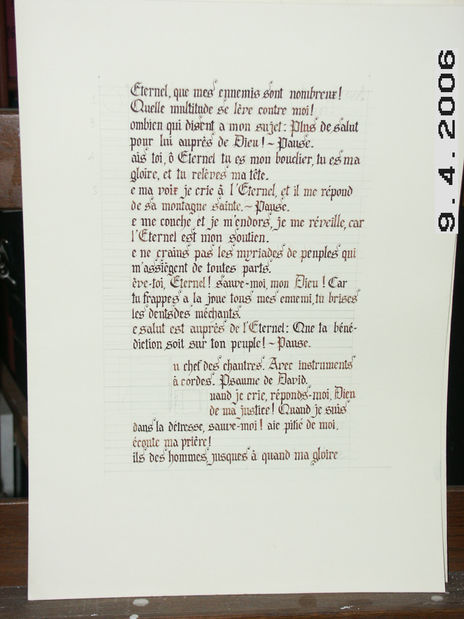 Eternel, que mes ennemis sont nombreux!
Quelle multitude se lève contre moi!
ombien qui disent a mon sujet: Plus de salut
pour lui auprès de Dieu! ~ Pause.
ais toi, ô Eternel tu es mon bouclier, tu es ma
gloire, et tu relèves ma tête.
e ma voix je crie à l'Eternel, et il me répond
de sa montagne sainte. ~ Pause.
e me couche et je m'endors, je me réveille, car
l'Eternel est mon soutien.
e ne crains pas les myriades de peuples qui
m'assiègent de toutes parts.
ève-toi, Eternel! sauve-moi, mon Dieu! Car
tu frappes a la joue tous mes ennemi, tu brises
les dentsdes méchants.
e salut est auprès de l'Eternel: Que ta béné-
diction soit sur ton peuple! ~ Pause.
u chef des chantres. Avec instruments
à cordes. Psaume de David.
uand je crie, réponds-moi, Dieu
de ma justice! Quand je suis
dans la détresse, sauve-moi! aie pitié de moi,
écoute ma prière!
ils des hommes, jusques à quand ma gloire
9.4.2006